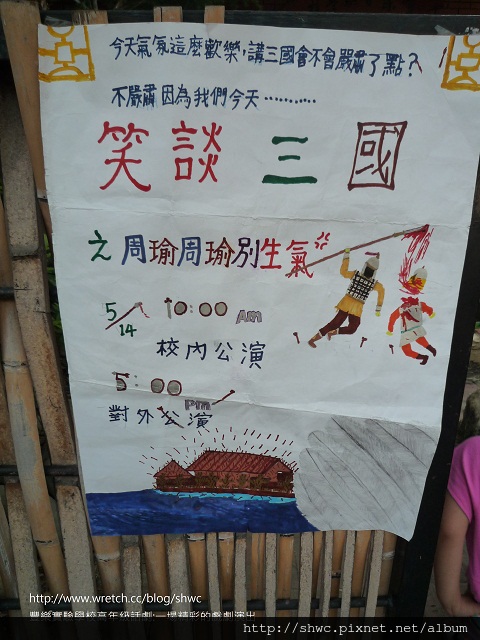 今天氣氛這麼歡樂，講三國會不會嚴肅了點？
不嚴肅因為我們今天…………
笑談三國
之周瑜周瑜別生氣
5/14 10:00 Am
校內公演
5:00 Pm
對外公演
http://www.wretch.cc/blog/shwc
豐樂實驗學校高年級話劇:一場精彩的戲劇演出
http://shwc.pixnet.net/album